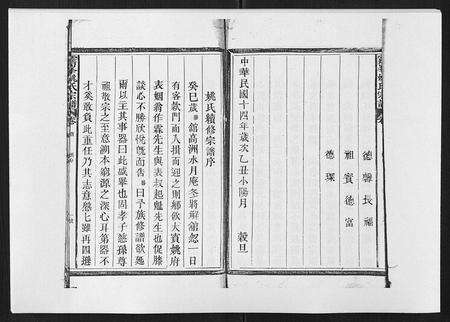 德馨長福
祖實德富
德琛
中華民國十四年歲次乙丑小陽月 穀旦
姚氏續修宗譜序
癸巳歲 館高洲水月庵冬將解館忽一日
有客款門而入揖而迎之則鄉飲大賓姚府
表姻翁作霖先生與表叔起魁先生也促膝
談心不勝欣悅旣而告 曰予族修譜欲延
爾以主其事 曰此盛舉也固孝子慈孫尊
祖敬宗之至意溯本窮源之深心耳第 不
才奚敢負此重任乃其志意慇七雖再四遜